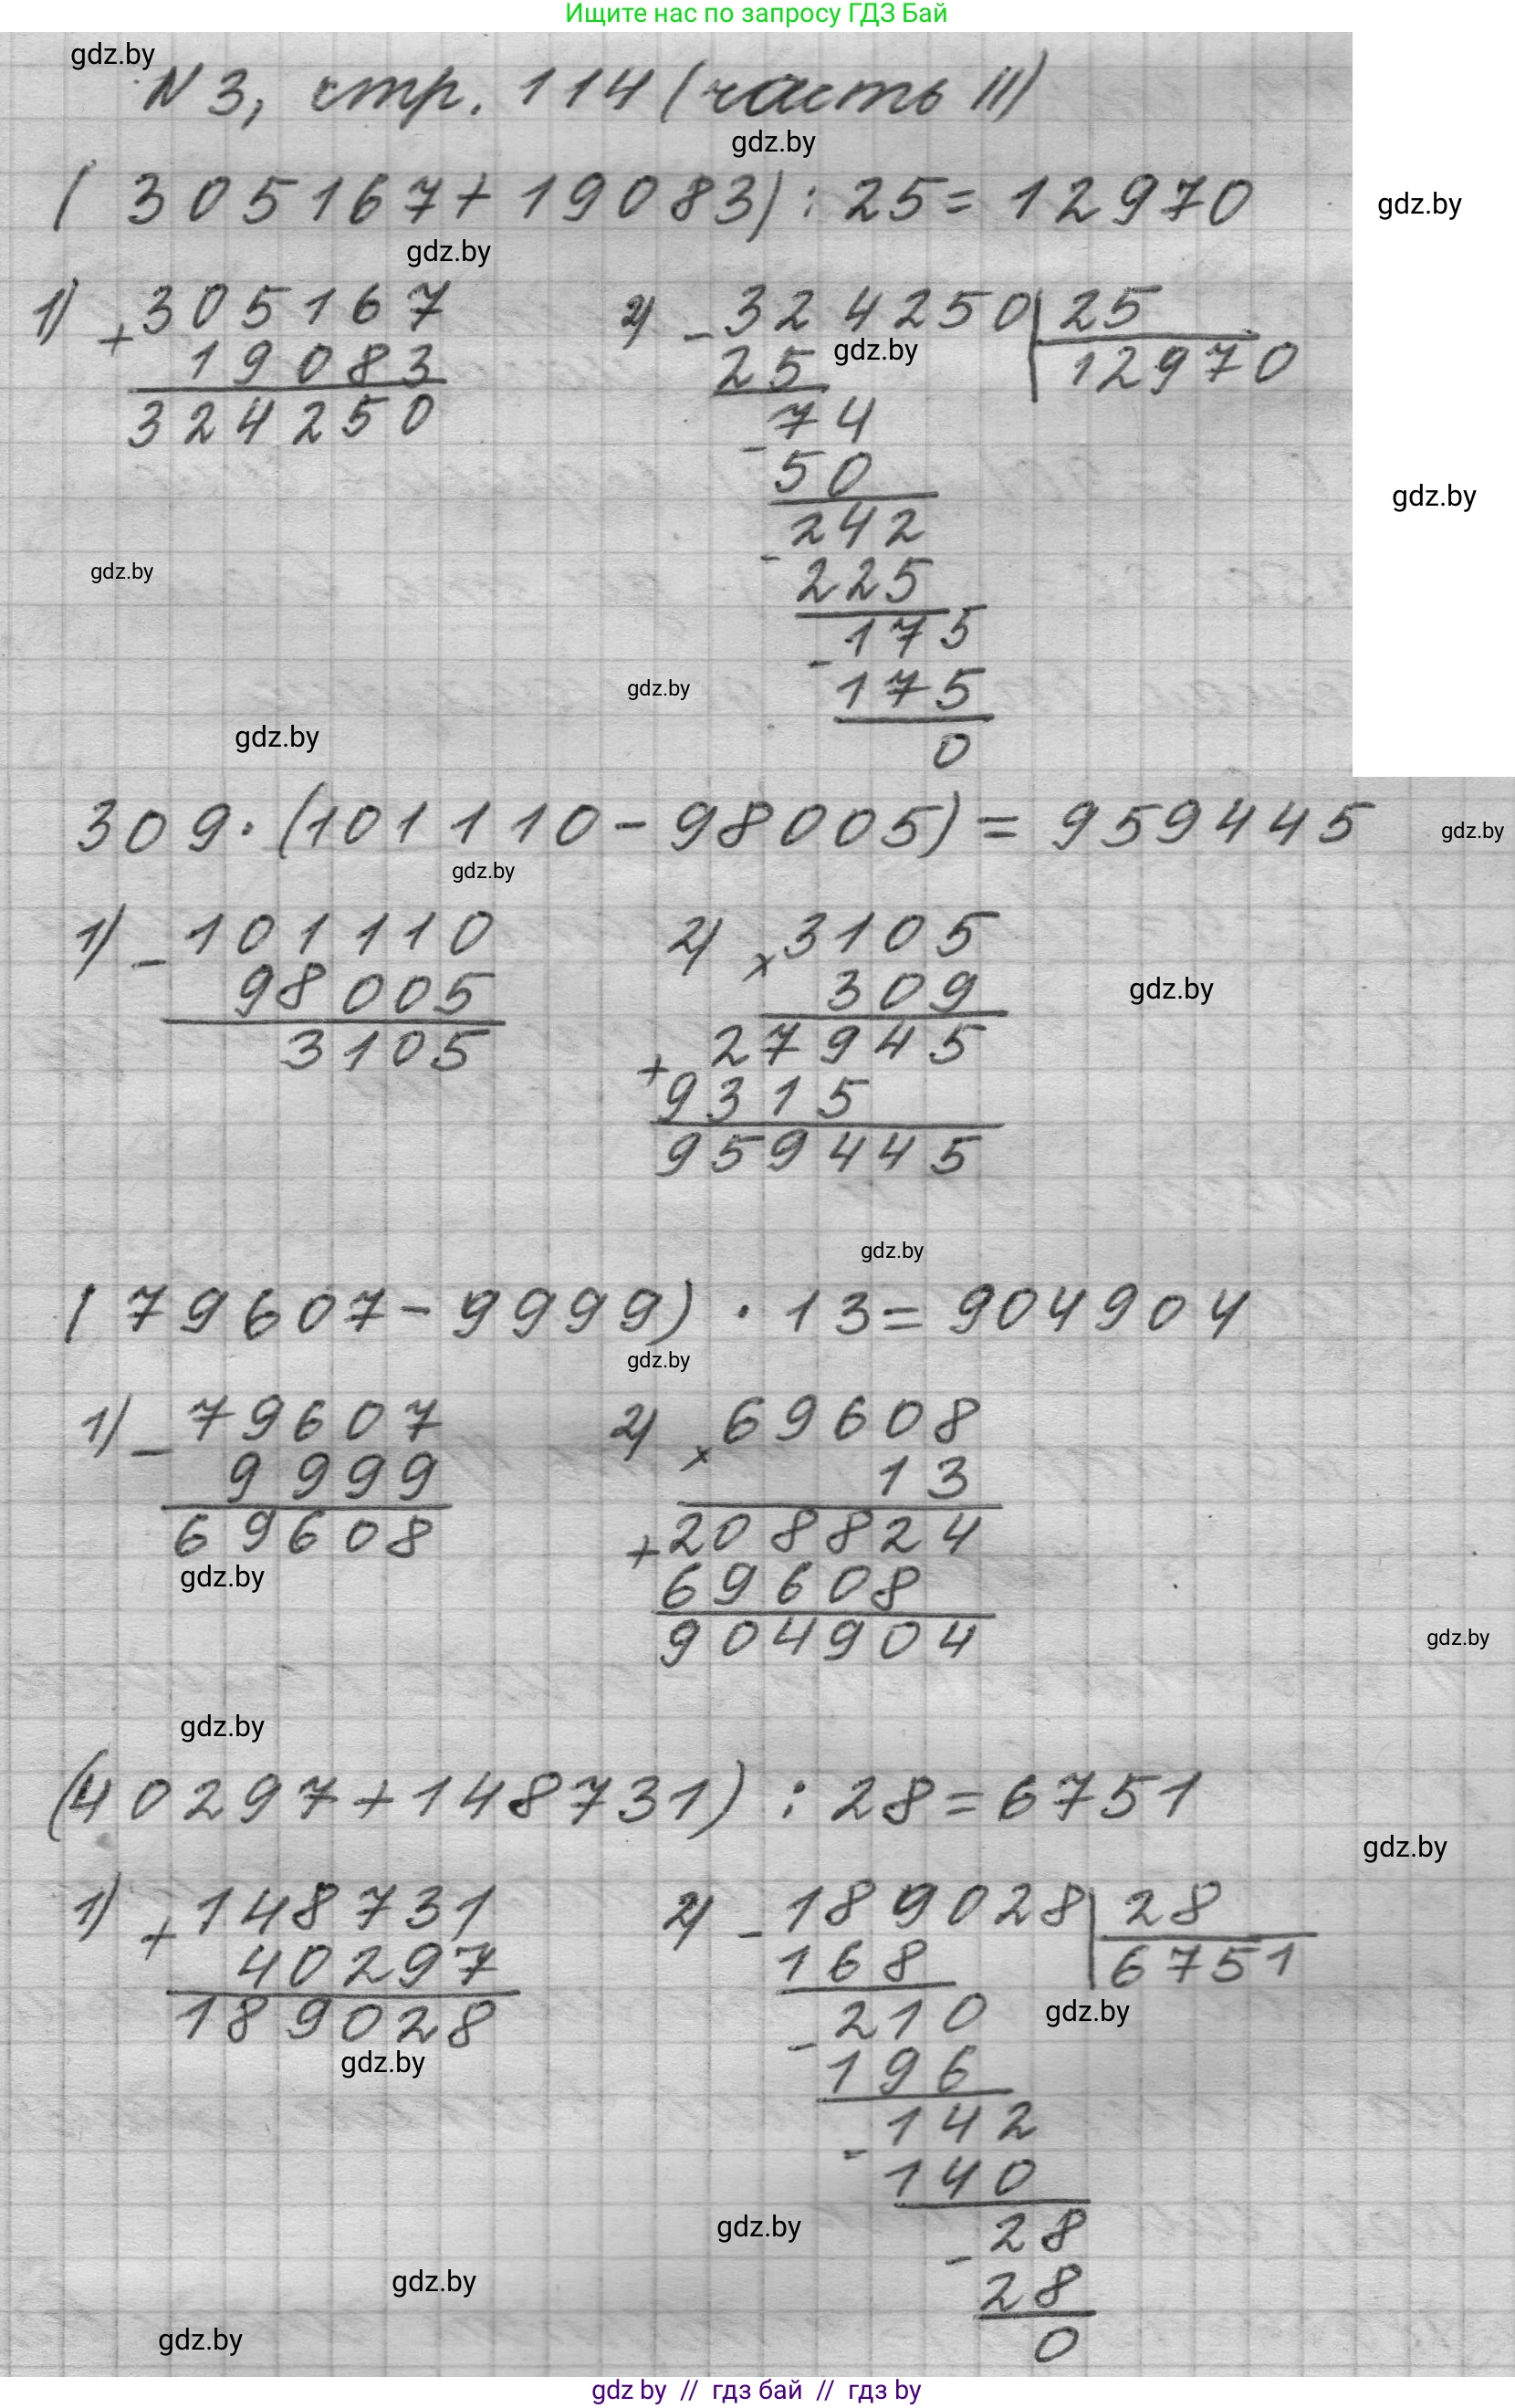 Ищите нас по запросу ГДЗ Бай
gdz.by
N 3, стр. 114 (часть II)
gdz.by
(305167+19083):25=12970
gdz.by
gdz.by
1) +305167
19083
324250
2) -324250|25
25 12970
gdz.by
-74
50
-242
225
-175
175
0
gdz.by
gdz.by
gdz.by
gdz.by
309·(101110-98005)=959445
gdz.by
gdz.by
1) -101110
98005
3105
2) ×3105
309
+27945
9315
959445
gdz.by
gdz.by
(79607-9999)·13=904904
gdz.by
1) -79607
9999
69608
gdz.by
2) ×69608
13
+208824
69608
904904
gdz.by
gdz.by
(40297+148731):28=6751
gdz.by
1) +148731
40297
189028
gdz.by
2) -189028|28
168 6751
gdz.by
-210
196
-142
140
-28
28
0
gdz.by
gdz.by
gdz.by
gdz by // гдз бай // гдз by